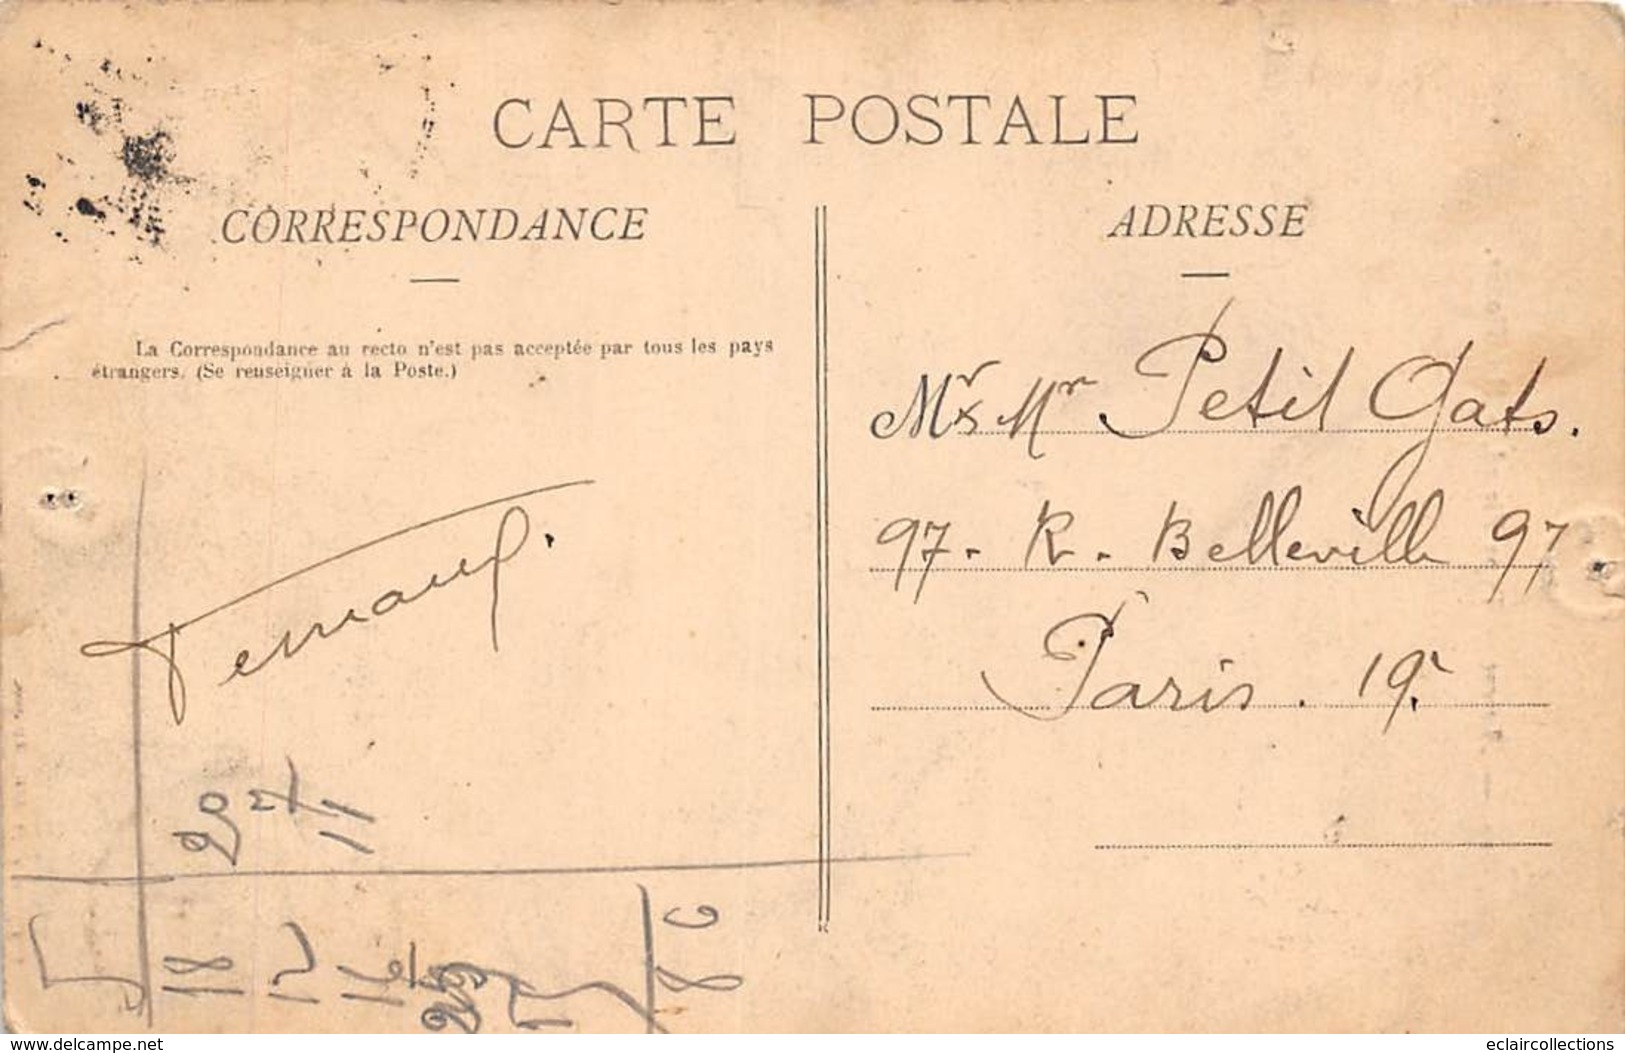 CARTE POSTALE
CORRESPONDANCE
ADRESSE
La Correspondance au recto n'est pas acceptée par tous les pays
étrangers. (Se renseigner à la Poste.)
Fernand.
Mr & Mr Petit Gats.
97. R. Belleville 97
Paris. 19.
20
11
18
12
16
29
80
www.delcampe.net
eclaircollections